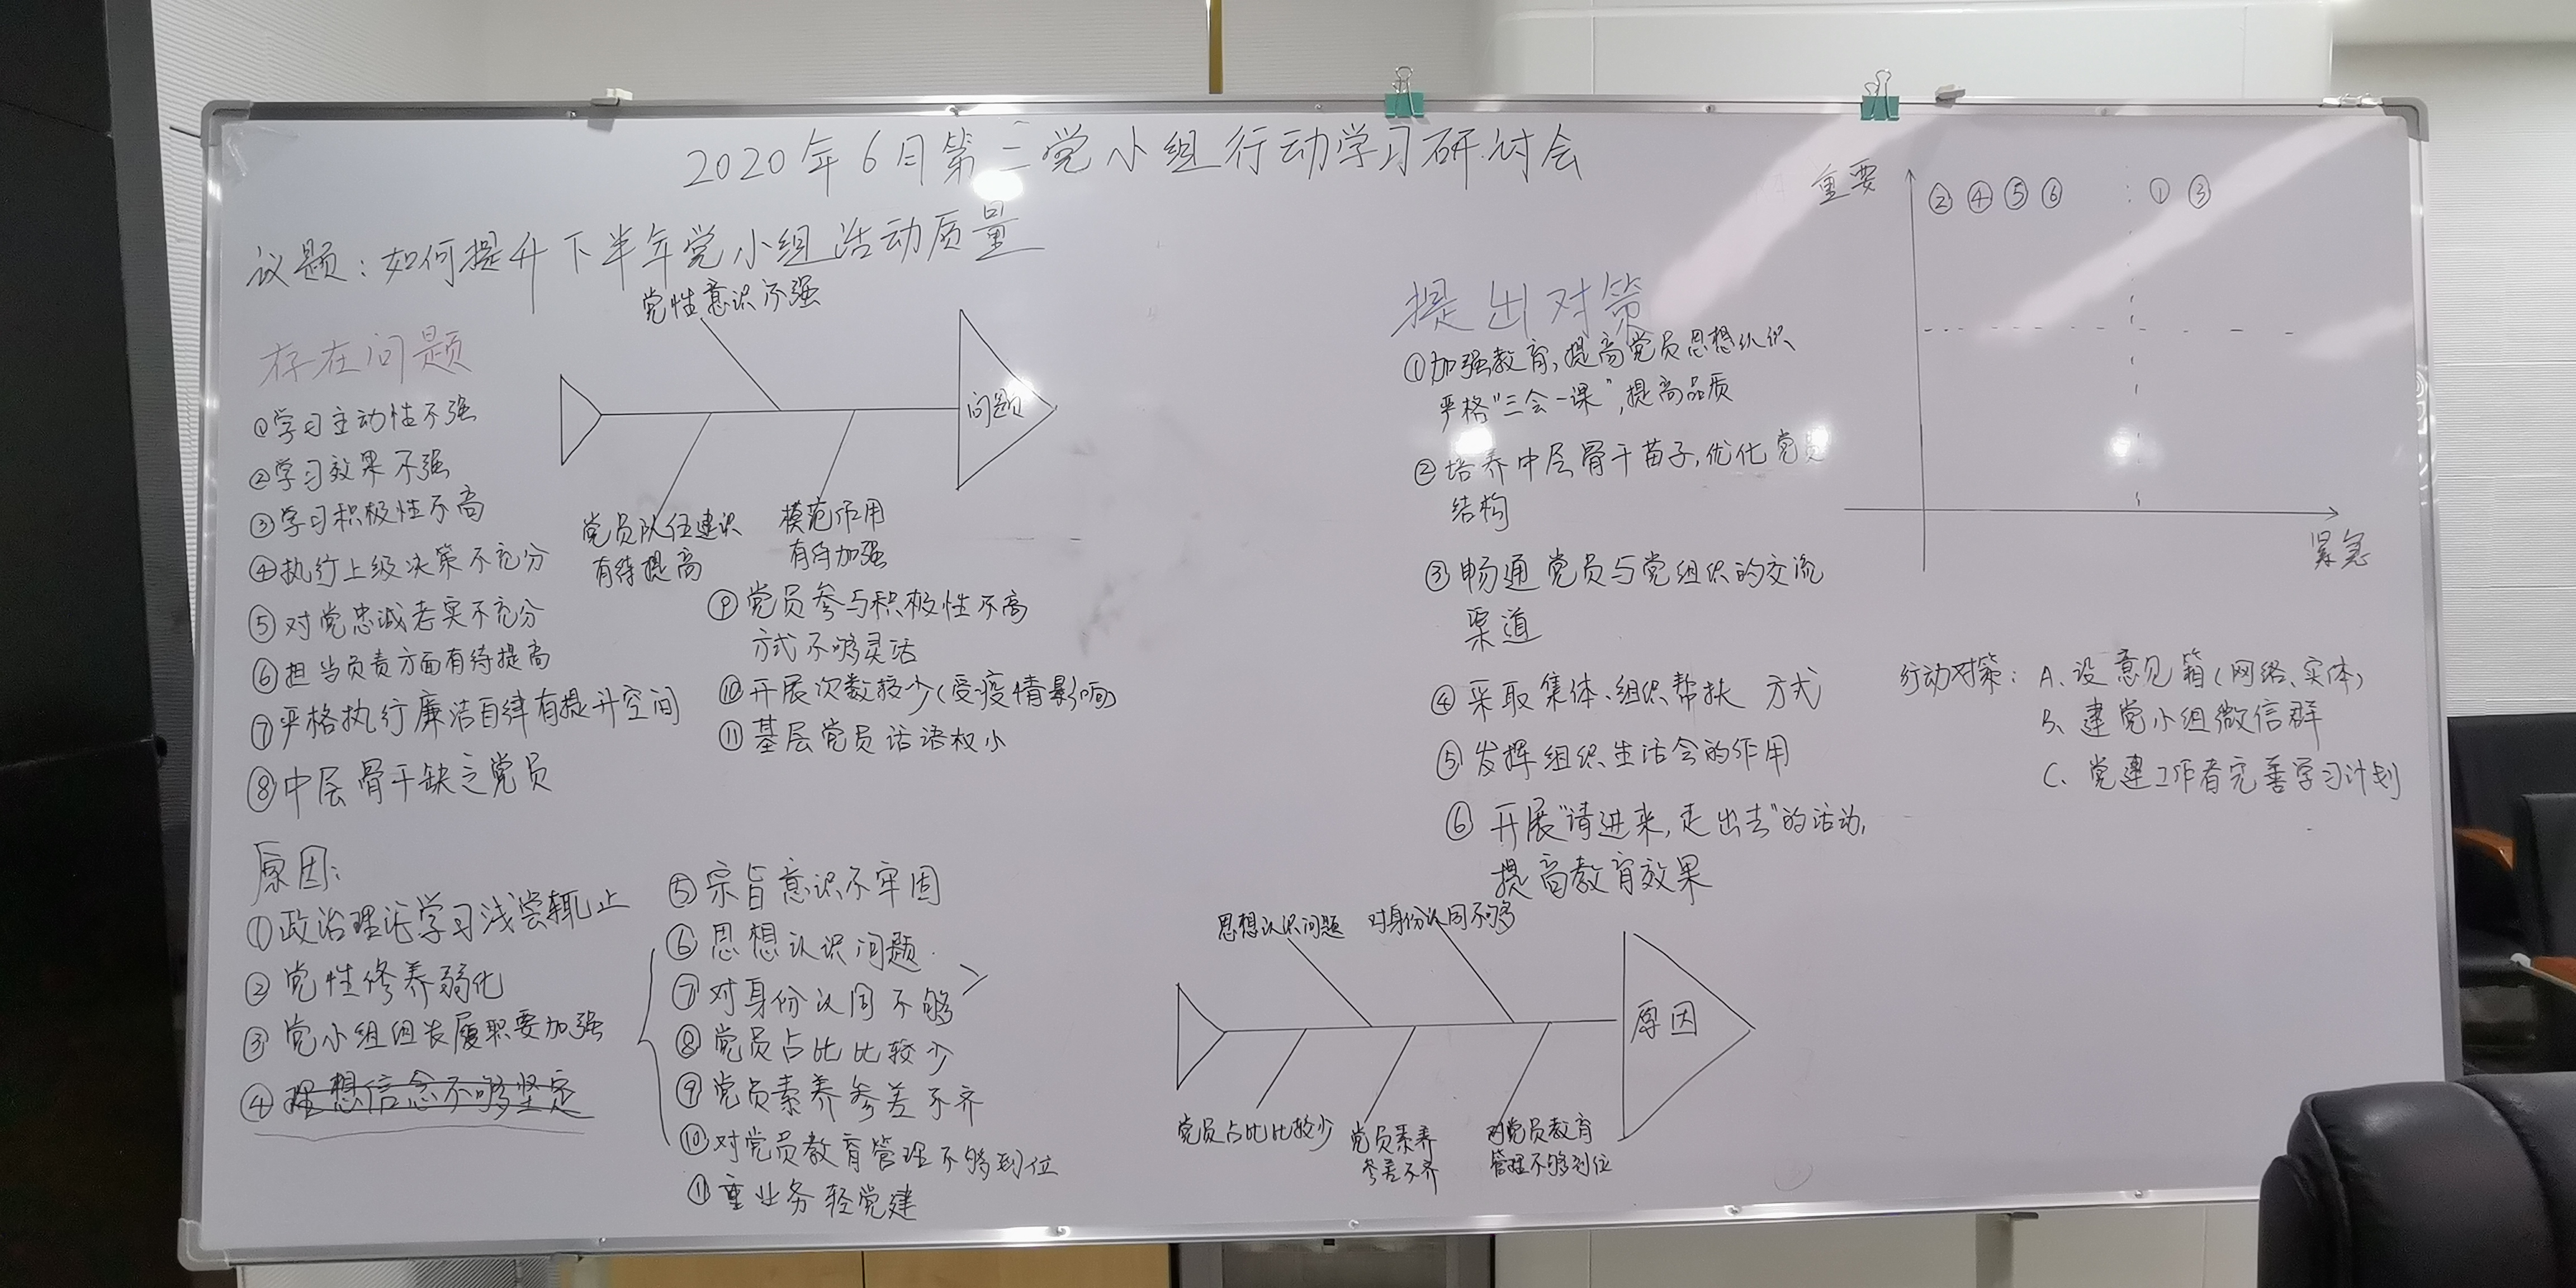 2020年6月第三党小组行动学习研讨会
议题：如何提升下半年党小组活动质量
存在问题
①学习主动性不强
②学习效果不强
③学习积极性不高
④执行上级决策不充分
⑤对党忠诚老实不充分
⑥担当负责方面有待提高
⑦严格执行廉洁自律有提升空间
⑧中层骨干缺乏党员
党性意识不强
问题
党员队伍建识
有待提高
模范作用
有待加强
⑨党员参与积极性不高
方式不够灵活
⑩开展次数较少(受疫情影响)
⑪基层党员话语权小
原因：
①政治理论学习浅尝辄止
②党性修养弱化
③党小组组长履职要加强
④理想信念不够坚定
⑤宗旨意识不牢固
⑥思想认识问题
⑦对身份认同不够
⑧党员占比比较少
⑨党员素养参差不齐
⑩对党员教育管理不够到位
⑪重业务轻党建
提出对策
①加强教育,提高党员思想认识
严格"三会一课",提高品质
②培养中层骨干苗子,优化党员
结构
③畅通党员与党组织的交流
渠道
④采取集体、组织帮扶方式
⑤发挥组织生活会的作用
⑥开展"请进来,走出去"的活动,
提高教育效果
思想认识问题
对身份认同不够
原因
党员占比比较少
党员素养
参差不齐
对党员教育
管理不够到位
重要
②④⑤⑥ ①③
紧急
行动对策：A、设意见箱(网络、实体)
B、建党小组微信群
C、党建工作者完善学习计划